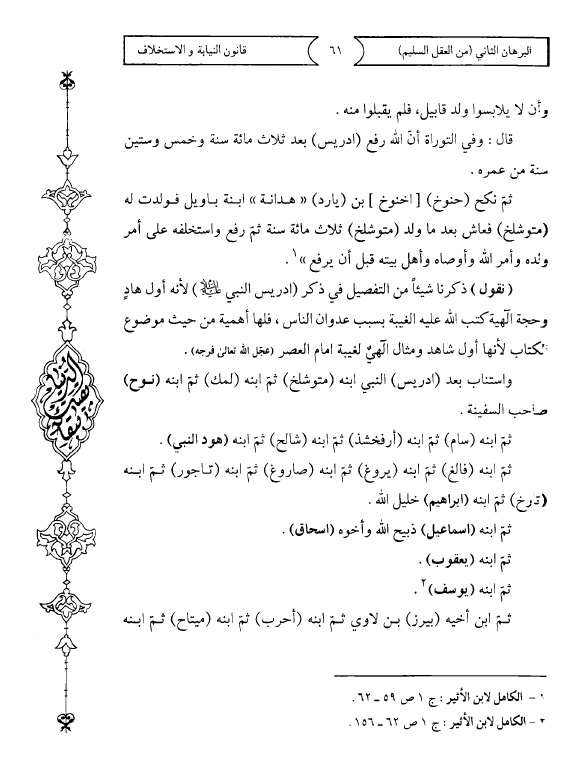 البرهان الثاني (من العقل السليم) ٦١ قانون النيابة و الاستخلاف
وأن لا يلابسوا ولد قابيل، فلم يقبلوا منه .
قال : وفي التوراة أنّ الله رفع (ادريس) بعد ثلاث مائة سنة وخمس وستين
سنة من عمره .
ثمّ نكح (حنوخ) [ اخنوخ ] بن (يارد) « هدانة » ابنة باويل فولدت له
(متوشلخ) فعاش بعد ما ولد (متوشلخ) ثلاث مائة سنة ثمّ رفع واستخلفه على أمر
ولده وأمر الله وأوصاه وأهل بيته قبل أن يرفع »١ .
( نقول ) ذكرنا شيئاً من التفصيل في ذكر (ادريس النبي ﷺ) لأنه أول هادٍ
وحجة الٓهية كتب الله عليه الغيبة بسبب عدوان الناس ، فلها أهمية من حيث موضوع
الكتاب لأنها أول شاهد ومثال الٓهيٌ لغيبة امام العصر (عجّل الله تعالى فرجه) .
واستناب بعد (ادريس) النبي ابنه (متوشلخ) ثمّ ابنه (لمك) ثمّ ابنه (نوح)
صاحب السفينة .
ثمّ ابنه (سام) ثمّ ابنه (أرفخشذ) ثمّ ابنه (شالح) ثمّ ابنه (هود النبي) .
ثمّ ابنه (فالغ) ثمّ ابنه (يروغ) ثمّ ابنه (صاروغ) ثمّ ابنه (تاجور) ثمّ ابنه
(تارخ) ثمّ ابنه (ابراهيم) خليل الله .
ثمّ ابنه (اسماعيل) ذبيح الله وأخوه (اسحاق) .
ثمّ ابنه (يعقوب) .
ثمّ ابنه (يوسف)٢ .
ثمّ ابن أخيه (بيرز) بن لاوي ثمّ ابنه (أحرب) ثمّ ابنه (ميتاح) ثمّ ابنه
١ - الكامل لابن الأثير : ج ١ ص ٥٩ ـ ٦٢ .
٢ - الكامل لابن الأثير : ج ١ ص ٦٢ ـ ١٥٦ .